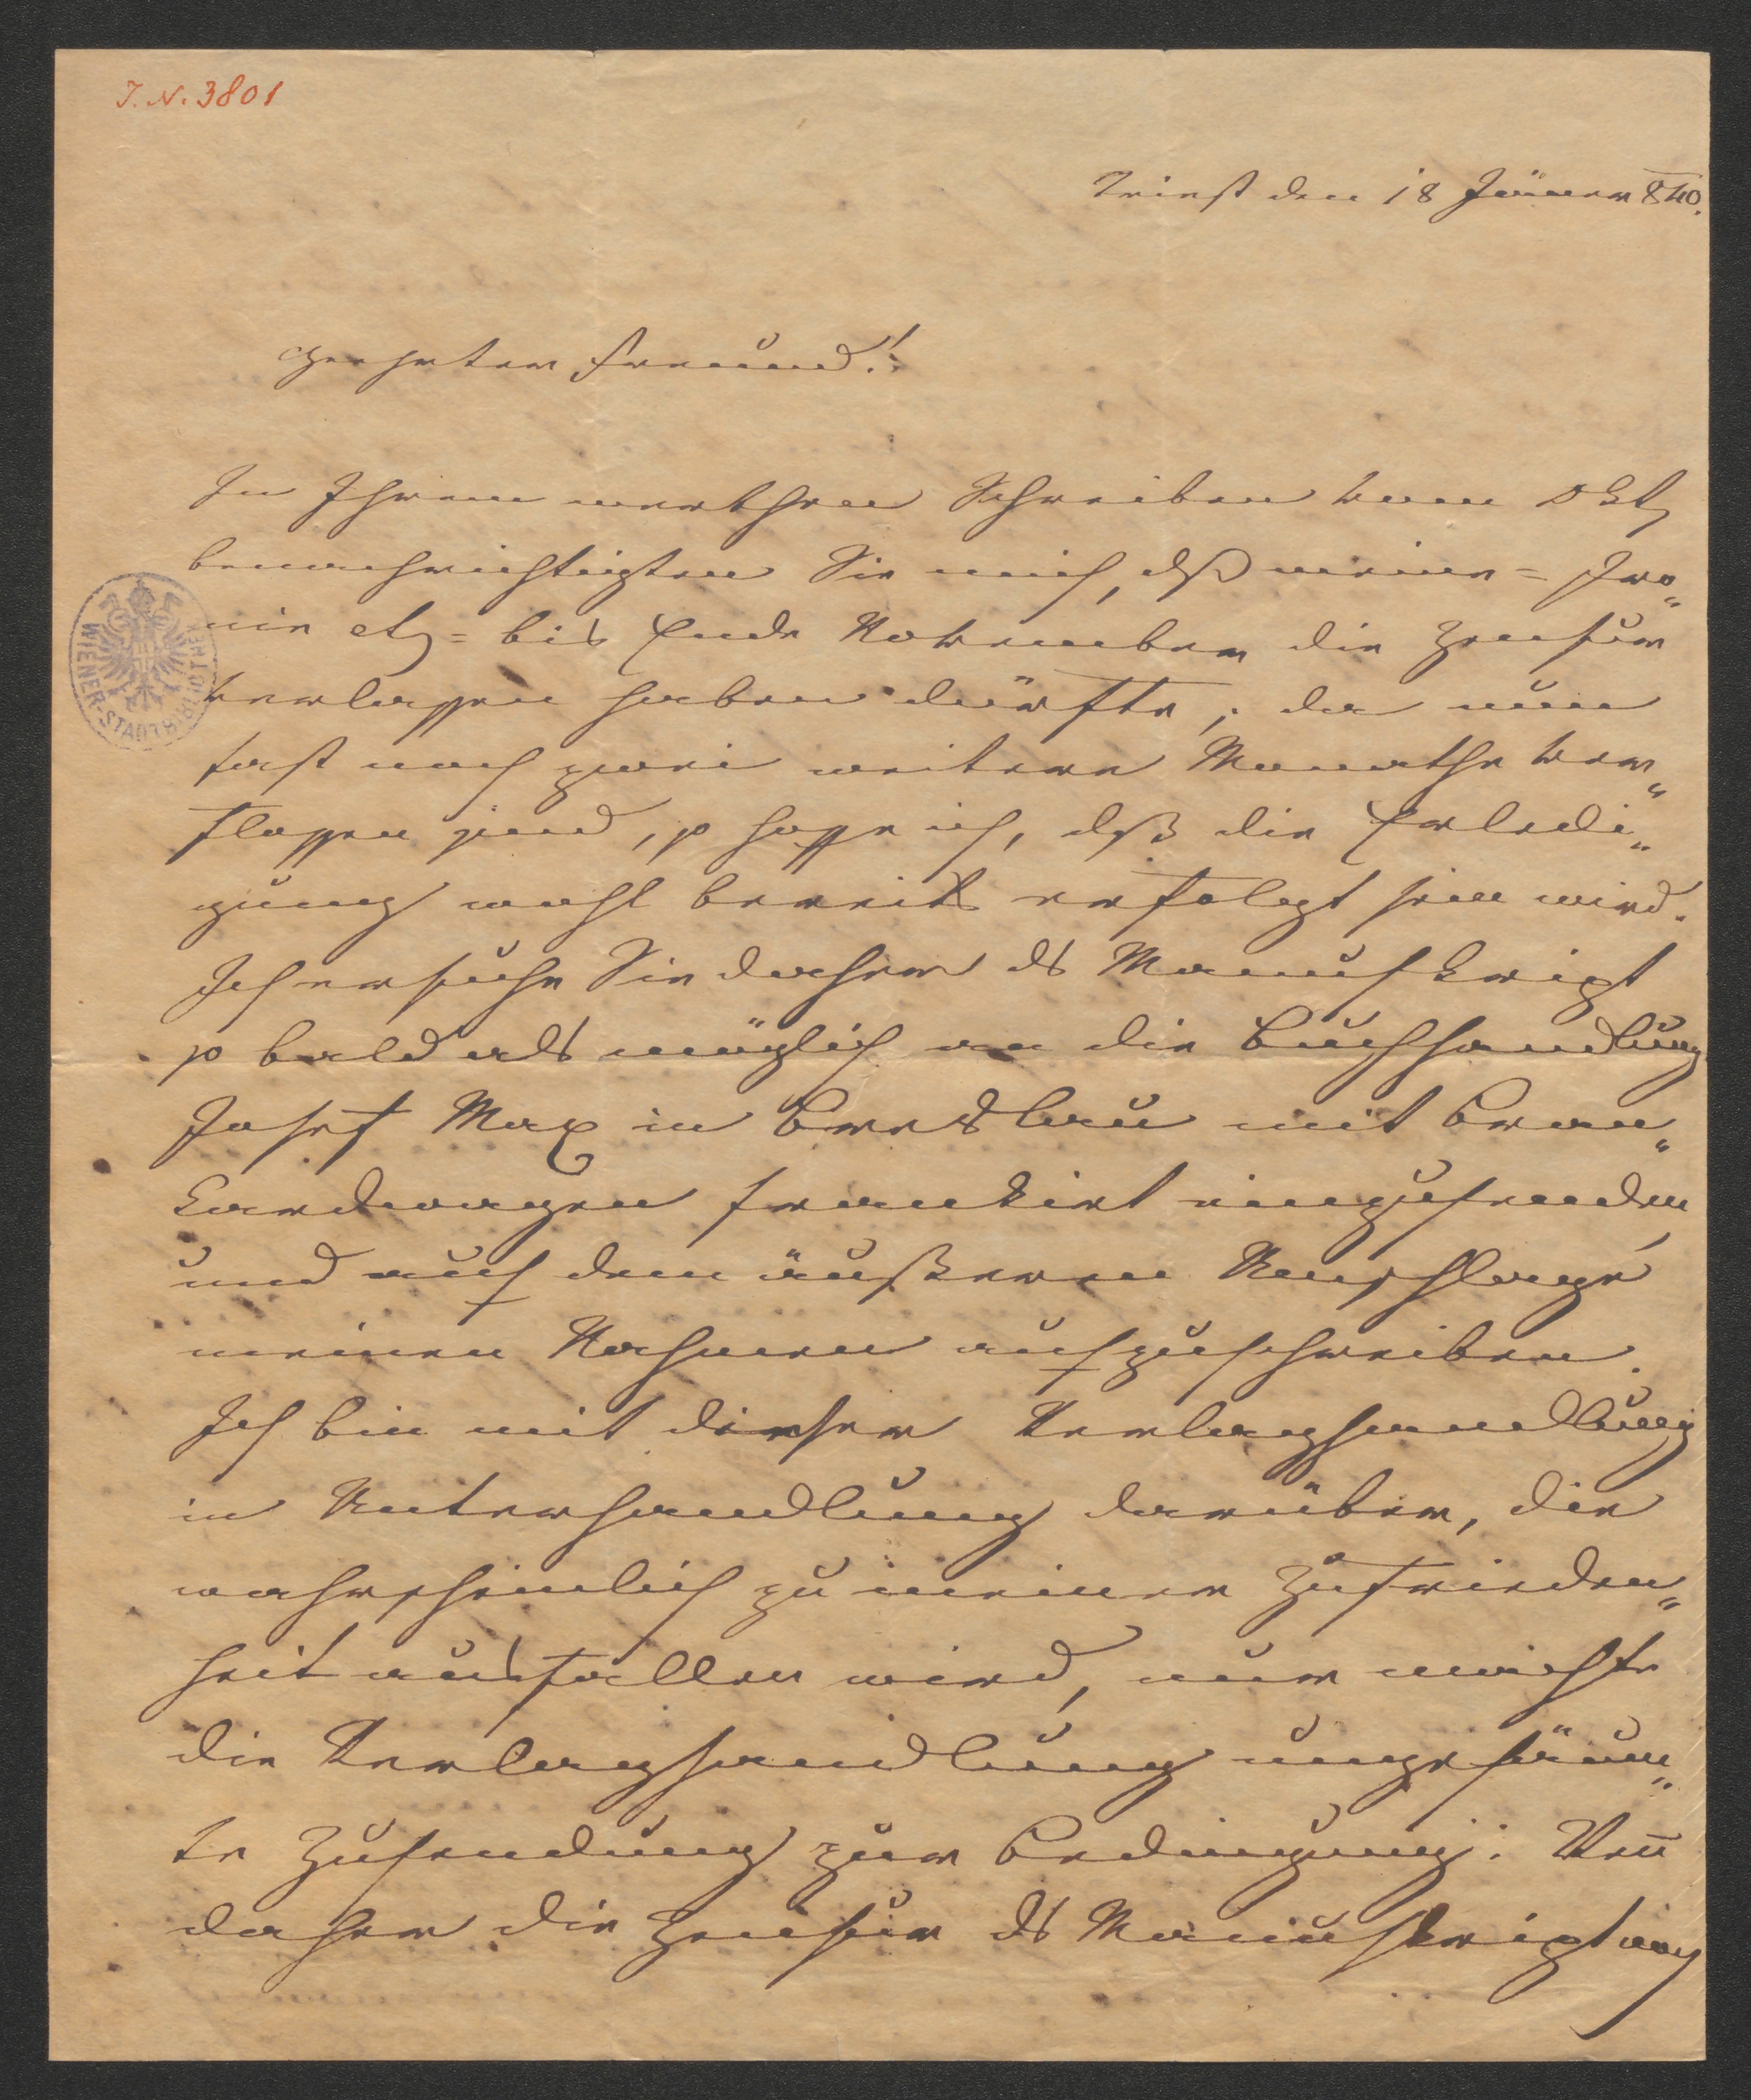 J. N. 3801
Triest den 18 Jäner 840.
Geehrter Freund!
In Ihrem werthen Schreiben vom Okt
benachrichtigten Sie mich, dß meine = Iro„
nie etz = bis Ende November die Zensur
verlassen haben dürfte; da nun
fast noch zwei weitere Monathe ver„
flossen sind, so hoffe ich, dß die Erledi„
gung wohl bereits erfolgt sein wird.
Ich ersuche Sie daher ds Manuskript
so bald als möglich an die Buchhandlung
Josef Max in Breslau mit Bran„
kardwagen frankirt einzusenden,
und auf dem äußeren Umschlage
meinen Nahmen aufzuschreiben.
Ich bin mit dieser Verlagshandlung
in Unterhandlung darüber, die
wahrscheinlich zu meiner Zufrieden„
heit ausfallen wird, nur macht
die Verlagshandlung ungesäum„
te Zusendung zur Bedingung. Wen̄
daher die Zensur ds Manuskript
WIENER-STADTBIBLIOTHEK